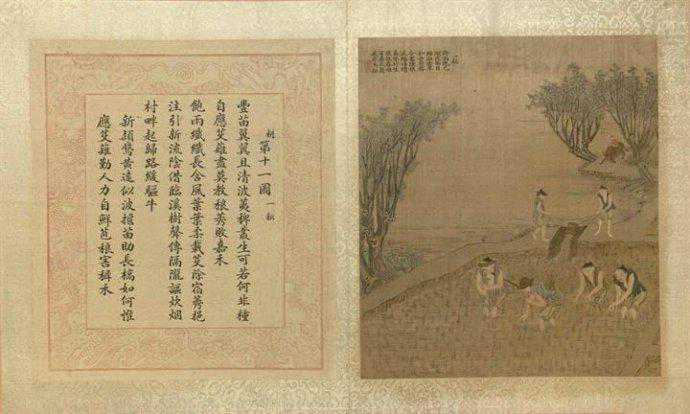 耕 第十一圖 一耘
豐苗翼翼且清波荑稗叢生可若何非種
自應芟薙盡莫教稂莠敗嘉禾
飽雨纖纖長含風葉葉柔載芟除宿莠挹
注引新流陰借臨溪樹聲傳隔隴謳炊烟
村畔起歸路緩驅牛
新穎鶯黃遠似波揠苗助長槁如何惟
應芟薙勤人力自鮮苞稂害禾
一耘